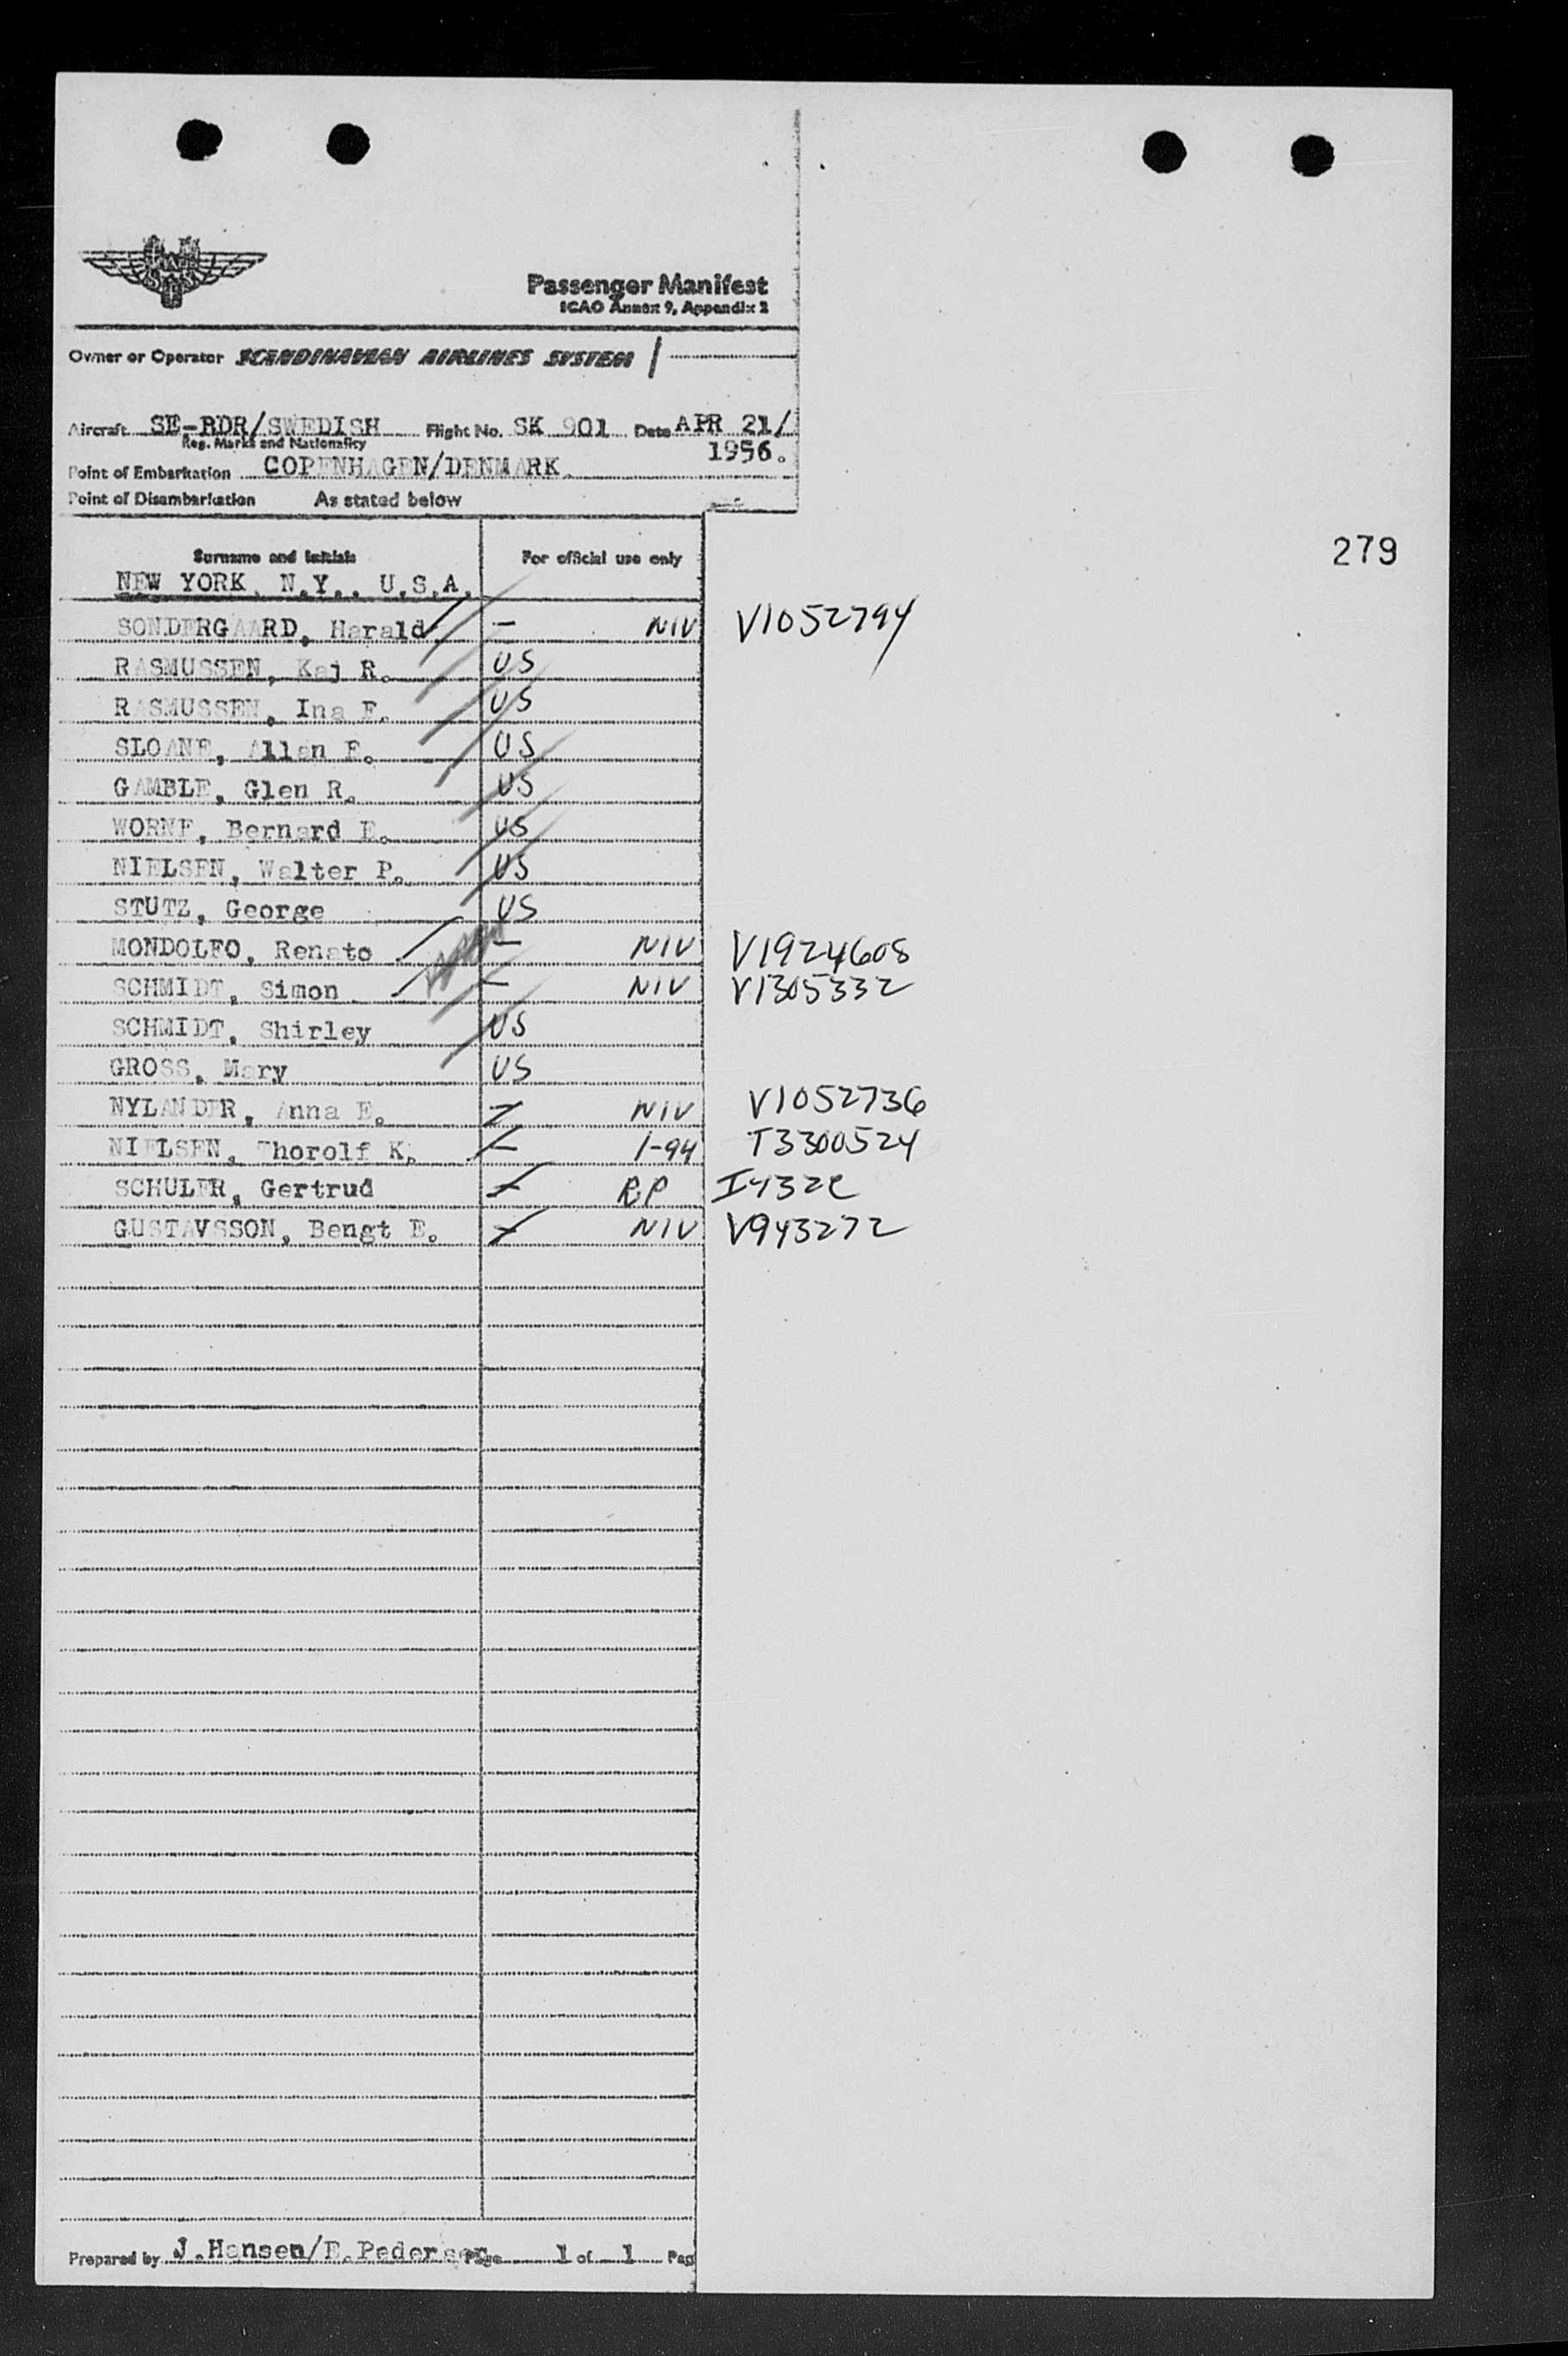 SAS
Passenger Manifest
ICAO Annex 9, Appendix 2
Owner or Operator SCANDINAVIAN AIRLINES SYSTEM /
Aircraft SE-BDR/SWEDISH Flight No. SK 901 Date APR 21/
Reg. Marks and Nationality 1956.
Point of Embarkation COPENHAGEN/DENMARK
Point of Disembarkation As stated below
Surname and Initials For official use only
279
NEW YORK, N.Y., U.S.A.
SONDERGAARD, Harald - NIV V1052794
RASMUSSEN, Kaj R. US
RASMUSSEN, Ina F. US
SLOANE, Allen E. US
GAMBLE, Glen R. US
WORNE, Bernard E. US
NIELSEN, Walter P. US
STUTZ, George US
MONDOLFO, Renato - NIV V1924608
SCHMIDT, Simon - NIV V1305332
SCHMIDT, Shirley US
GROSS, Mary US
NYLANDER, Anna E. - NIV V1052736
NIELSEN, Thorolf K. - I-94 T3300524
SCHULER, Gertrud - RP
GUSTAVSSON, Bengt E. - NIV V943272
Prepared by J.Hansen/E.Pedersen Page 1 of 1 Pag